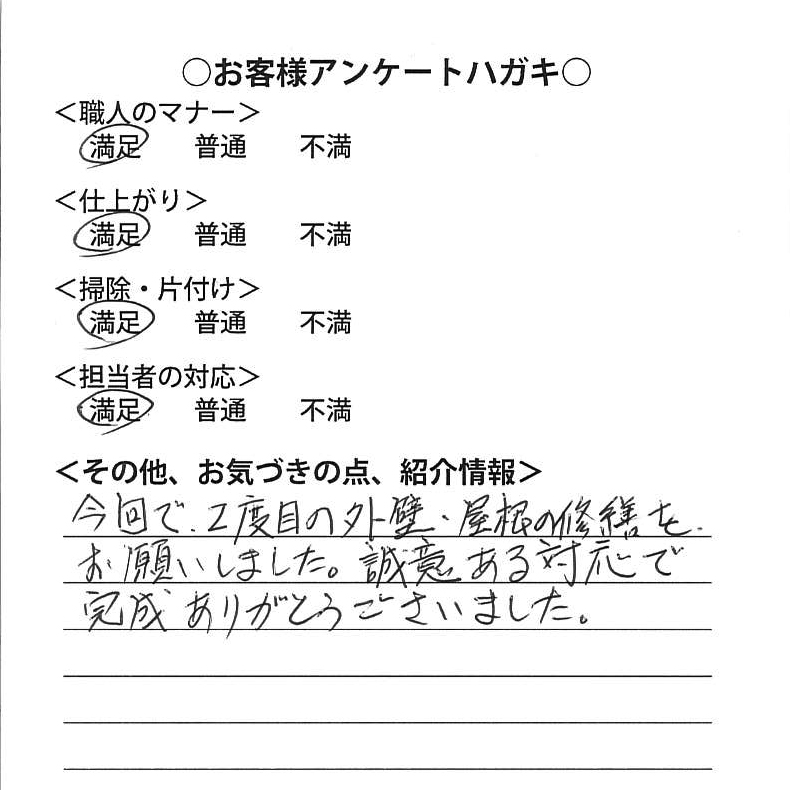 ○お客様アンケートハガキ○
＜職人のマナー＞
満足 普通 不満
＜仕上がり＞
満足 普通 不満
＜掃除・片付け＞
満足 普通 不満
＜担当者の対応＞
満足 普通 不満
＜その他、お気づきの点、紹介情報＞
今回で、2度目の外壁・屋根の修繕を
お願いしました。誠意ある対応で
完成ありがとうございました。